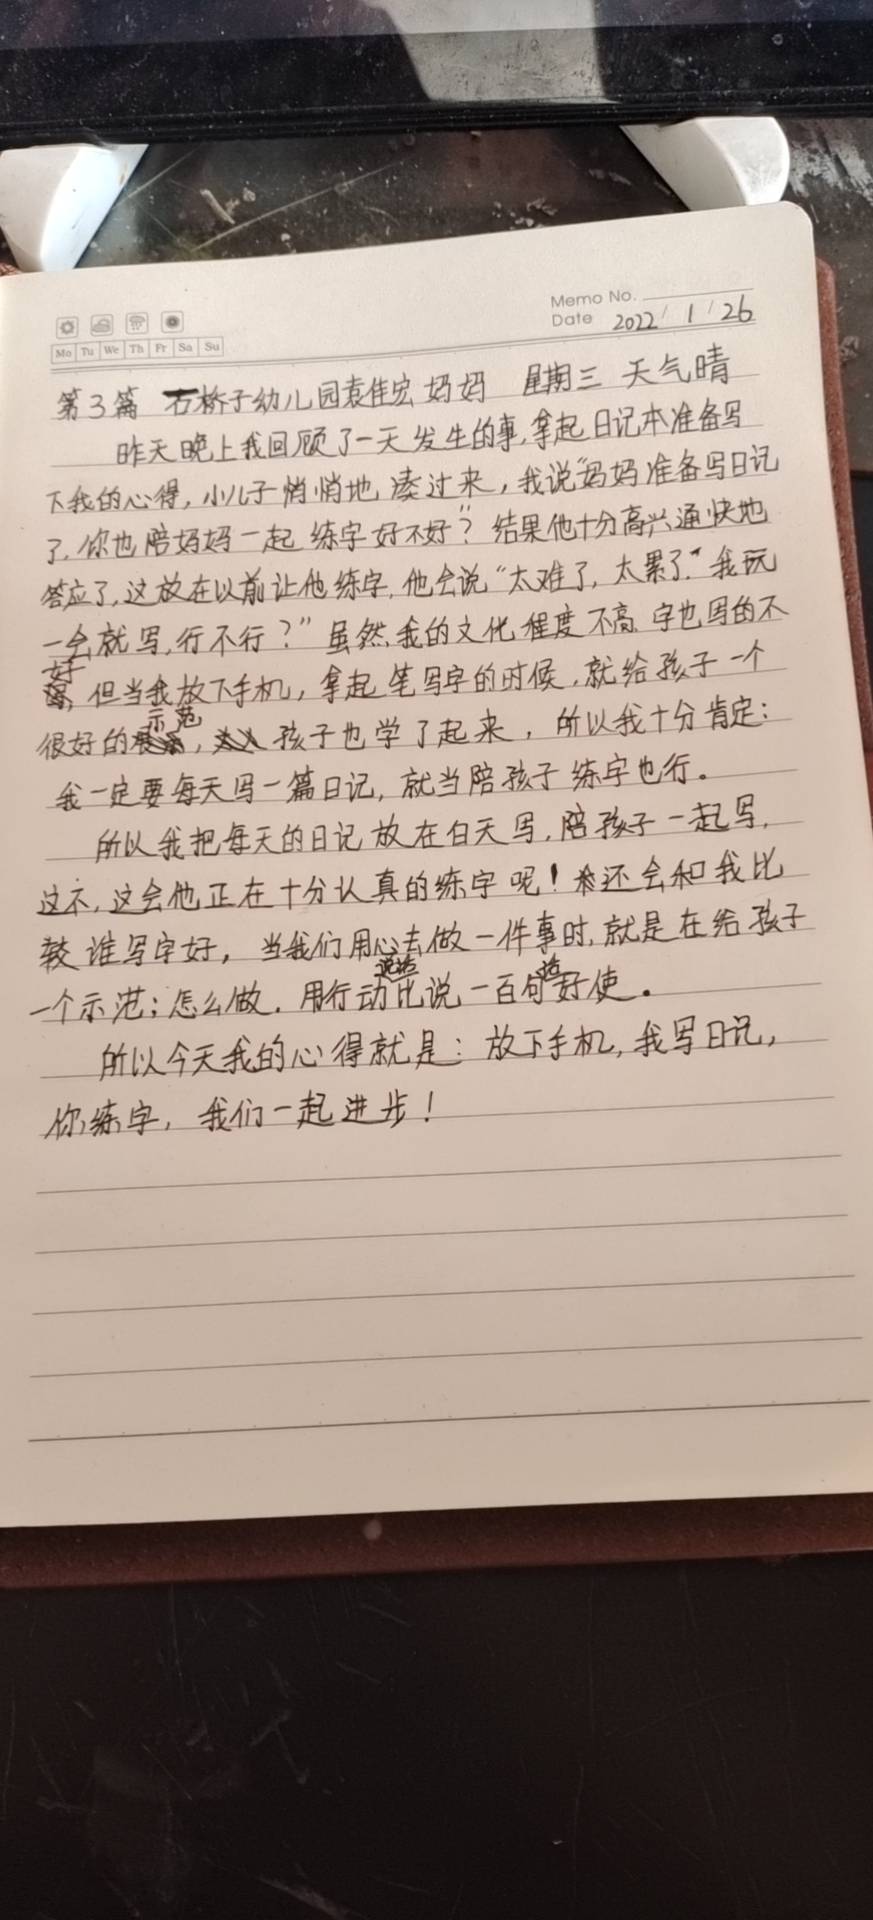 Memo No.
Date 2022/1/26
Mo Tu We Th Fr Sa Su
第3篇 石桥子幼儿园袁佳宏妈妈 星期三 天气晴
昨天晚上我回顾了一天发生的事,拿起日记本准备写
下我的心得,小儿子悄悄地凑过来,我说"妈妈准备写日记
了,你也陪妈妈一起练字好不好"?结果他十分高兴通快地
答应了,这放在以前让他练字,他会说"太难了,太累了"我玩
一会就写,行不行?"虽然我的文化程度不高,字也写的不
好,但当我放下手机,拿起笔写字的时候,就给孩子一个
很好的示范,孩子也学了起来,所以我十分肯定:
我一定要每天写一篇日记,就当陪孩子练字也行。
所以我把每天的日记放在白天写,陪孩子一起写,
这不,这会他正在十分认真的练字呢!还会和我比
较谁写字好,当我们用心去做一件事时,就是在给孩子
一个示范;怎么做.用行动比说一百句话好使。
所以今天我的心得就是:放下手机,我写日记,
你练字,我们一起进步!